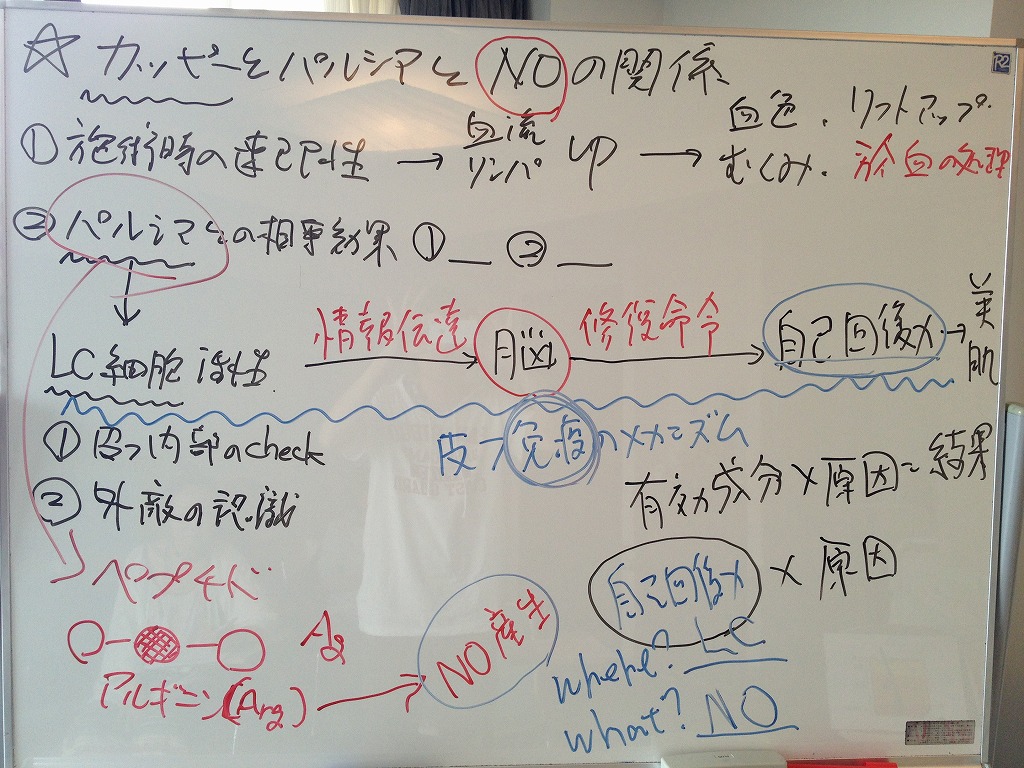 ☆ カッピーとパルシアとNOの関係
① 施術時の速己性 → 血流 リンパ up → 血色、リフトアップ
むくみ、瘀血の処理
② パルシアとの相乗効果 ①__ ②__
↓
LC細胞活性 情報伝達 → 脳 修復命令 → 自己回復力 → 美肌
皮フ免疫のメカニズム
① 皮フ内部のcheck
② 外敵の認識
有効成分×原因=結果
自己回復力 × 原因
where? LC
what? NO
ペプチド
Ag
アルギニン(Arg) → NO産生